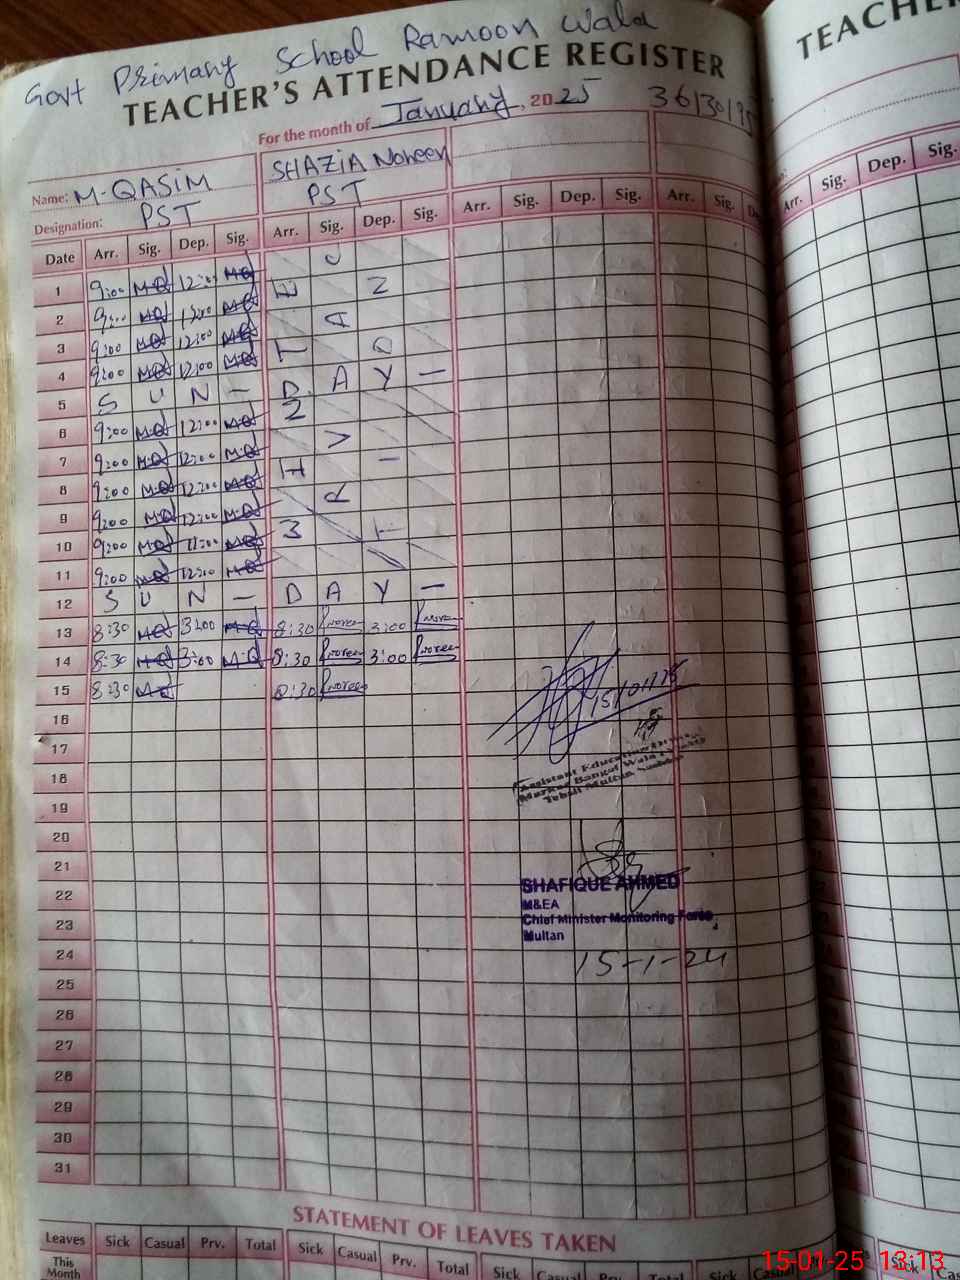 Govt Primary School Ramoon Wala
TEACHER'S ATTENDANCE REGISTER
TEACHER
For the month of January, 2025
Name: M-QASIM SHAZIA Noreen
Designation: PST PST
Date Arr. Sig. Dep. Sig. Arr. Sig. Dep. Sig. Arr. Sig. Dep. Sig. Arr. Sig. Arr. Sig. Dep. Sig.
1 9:00 MQ 12:00 MQ
2 9:00 MQ 12:00 MQ
3 9:00 MQ 12:00 MQ
4 9:00 MQ 12:00 MQ
5 S U N - D A Y -
6 9:00 MQ 12:00 MQ
7 9:00 MQ 12:00 MQ
8 9:00 MQ 12:00 MQ
9 9:00 MQ 12:00 MQ
10 9:00 MQ 12:00 MQ
11 9:00 MQ 12:00 MQ
12 S U N - D A Y -
13 8:30 MQ 3:00 MQ 8:30 3:00
14 8:30 MQ 3:00 MQ 8:30 3:00
15 8:30 MQ 8:30
15/01/25
16
17
18
Assistant Education
19
20
21
22
SHAFIQUE AHMED
M&EA
23
Chief Minister Monitoring Force
Multan
24
15-1-24
25
26
27
28
29
30
31
STATEMENT OF LEAVES TAKEN
Leaves Sick Casual Prv. Total Sick Casual Prv. Total Sick Casual Prv. Total Sick Casual Sick
This Month
15-01-25 13:13